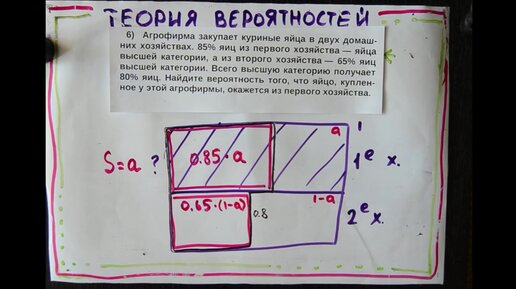 ТЕОРИЯ ВЕРОЯТНОСТЕЙ
6) Агрофирма закупает куриные яйца в двух домаш-
них хозяйствах. 85% яиц из первого хозяйства — яйца
высшей категории, а из второго хозяйства — 65% яиц
высшей категории. Всего высшую категорию получает
80% яиц. Найдите вероятность того, что яйцо, куплен-
ное у этой агрофирмы, окажется из первого хозяйства.
a
1
S=a ?
0.85·a
1е х.
0.65·(1-a)
1-a
0.8
2е х.